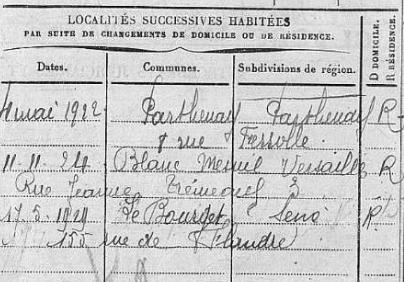 LOCALITÉS SUCCESSIVES HABITÉES
PAR SUITE DE CHANGEMENTS DE DOMICILE OU DE RÉSIDENCE.
Dates. Communes. Subdivisions de région. D DOMICILE. R RÉSIDENCE.
4 mai 1922 Parthenay Parthenay R
8 rue Ferolle
11-11-24 Blanc Mesnil Versaille R
Rue Jeanne 3
17-5-1929 Le Bourget Seine R
155 rue de Flandre